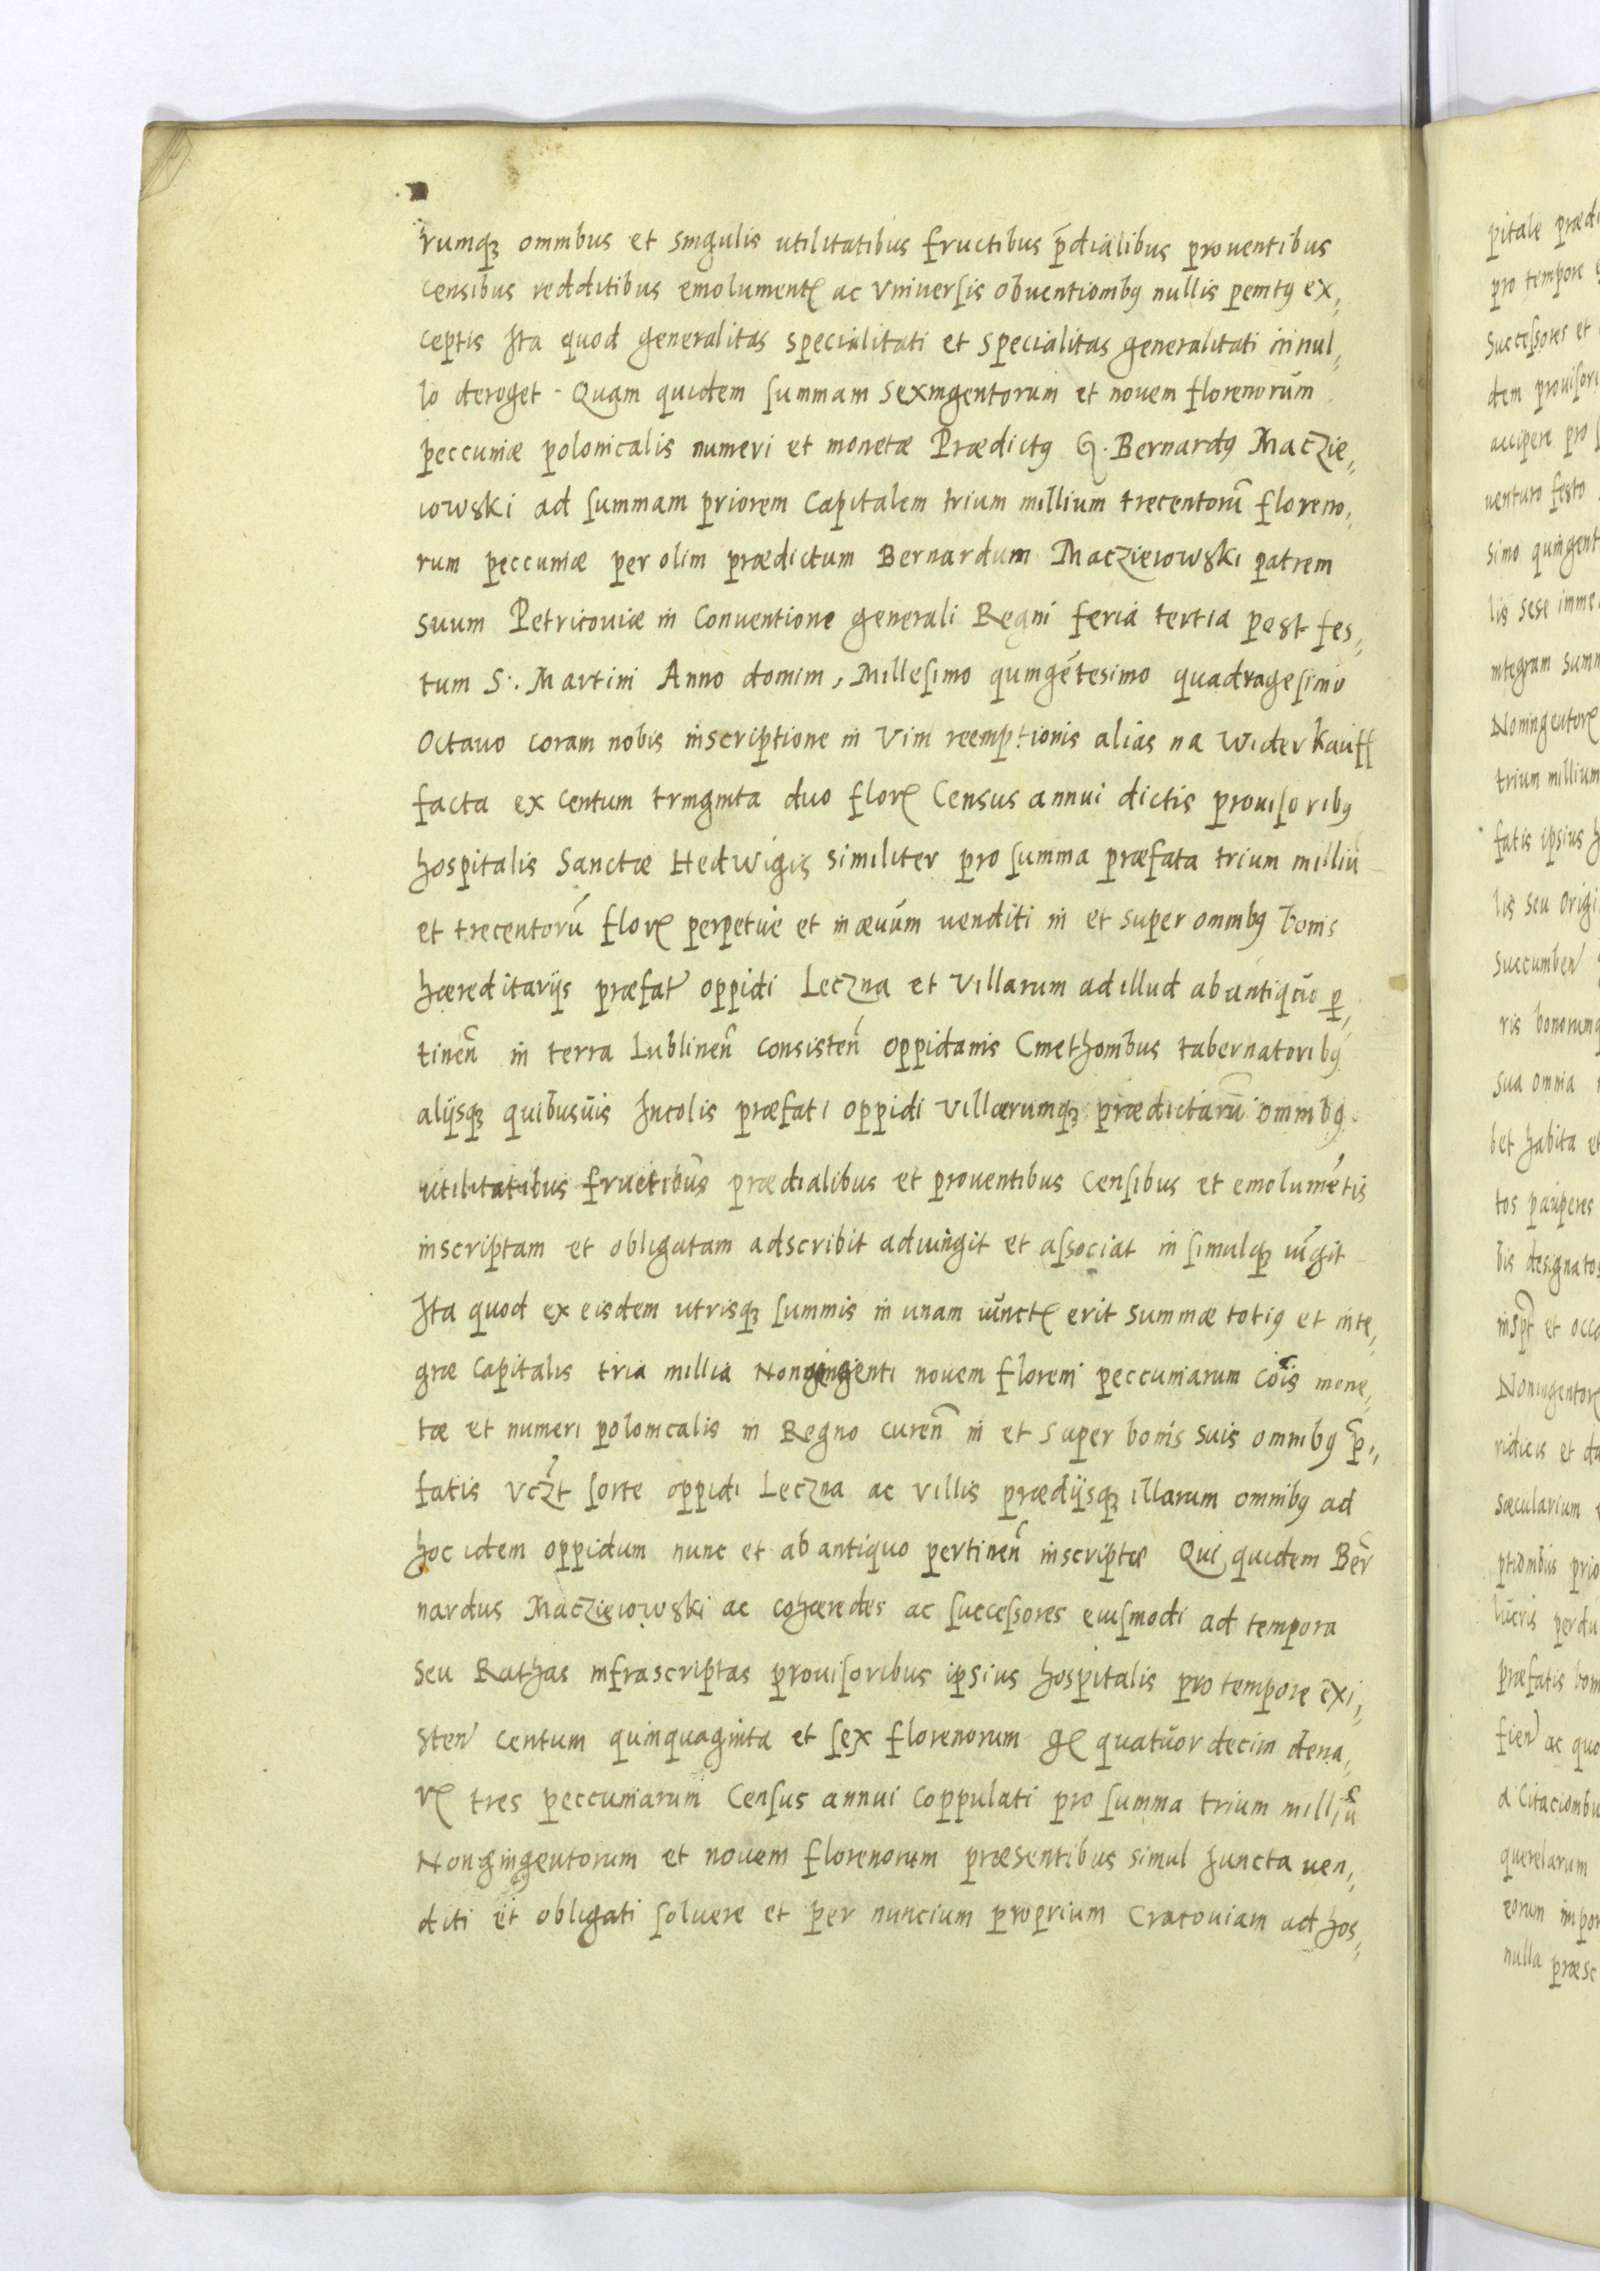 rumq₃ omnibus et singulis utilitatibus fructibus p̄dialibus prouentibus
censibus redditibus emolumentꝝ ac vniuersis obuentionibꝰ nullis pemtꝰ ex,
ceptis Ita quod generalitas specialitati et specialitas generalitati in nul,
lo deroget - Quam quidem summam sexingentorum et nouem florenorum
peccuniæ polonicalis numeri et monetæ Prædictꝰ G. Bernardꝰ Maczie,
iowski ad summam priorem Capitalem trium millium trecentorū floreno,
rum peccuniæ per olim prædictum Bernardum Maczieiowski patrem
suum Petricouiæ in Conuentione generali Regni feria tertia post fes,
tum S. Martini Anno domini, Millesimo quingētesimo quadragesimo
Octauo coram nobis inscriptione in Vim reemptionis alias na widerkauff
facta ex centum tringinta duo florꝝ Census annui dictis prouisoribꝰ
hospitalis Sanctæ Hedwigis similiter pro summa præfata trium milliū
et trecentorū florꝝ perpetue et in æuum venditi in et super omnibꝰ bonis
hæreditarijs præfat̄ oppidi Leczna et Villarum ad illud ab antiquo p,
tinen̄ in terra Lublinen̄ consisten̄ oppidanis Cmethonibus tabernatoribꝰ
alijsq₃ quibusuis Incolis præfati oppidi villarumq₃ prædictarū omnibꝰ
vtilitatibus fructibus prædialibus et prouentibus Censibus et emolumētis
inscriptam et obligatam adscribit adiungit et associat in simulq₃ iūgit
Ita quod ex eisdem utrisq₃ summis in unam iunctꝝ erit summæ totiꝰ et inte,
græ Capitalis tria millia Nongingenti nouem floreni peccuniarum cōis mone,
tæ et numeri polonicalis in Regno curen̄ in et super bonis suis omnibꝰ p̄,
fatis vcz̄t sorte oppidi Leczna ac villis prædijsq₃ illarum omnibꝰ ad
hoc idem oppidum nunc et ab antiquo pertinen̄ inscriptæ Qui quidem Ber̄
nardus Maczieiowski ac cohæredes ac successores eiusmodi ad tempora
seu Rathas infrascriptas prouisoribus ipsius hospitalis pro tempore exi,
sten̄ centum quinquaginta et sex florenorum gꝝ quatuordecim dena,
rꝝ tres peccuniarum Census annui coppulati pro summa trium milliū
Nongingentorum et nouem florenorum præsentibus simul Juncta ven,
diti et obligati soluere et per nuncium proprium Cracouiam ad hos,